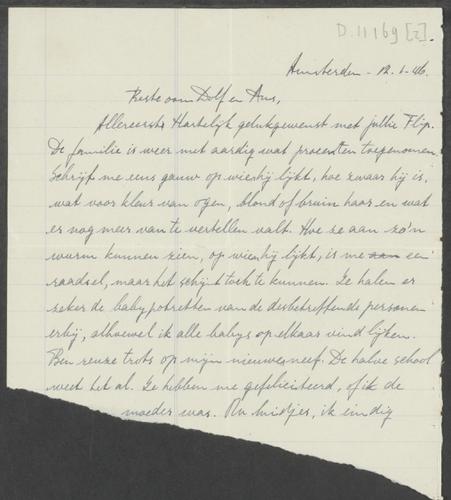 D.11169 [2].
Amsterdam - 12-1-46.
Beste oom Dolf en Ans,
Allereerst Hartelijk gelukgewenst met jullie Flip.
De familie is weer met aardig wat procenten toegenomen.
Schrijf me eens gauw op wie hij lijkt, hoe zwaar hij is,
wat voor kleur van ogen, blond of bruin haar en wat
er nog meer van te vertellen valt. Hoe ze aan zo'n
wurm kunnen zien, op wie hij lijkt, is me aan een
raadsel, maar het schijnt toch te kunnen. Ze halen er
zeker de babypotretten van de desbetreffende personen
erbij, alhoewel ik alle babys op elkaar vind lijken.
Ben reuze trots op mijn nieuwe neef. De halve school
weet het al. Ze hebben me gefeliciteerd, of ik de
moeder was. Nu luidjes, ik eindig